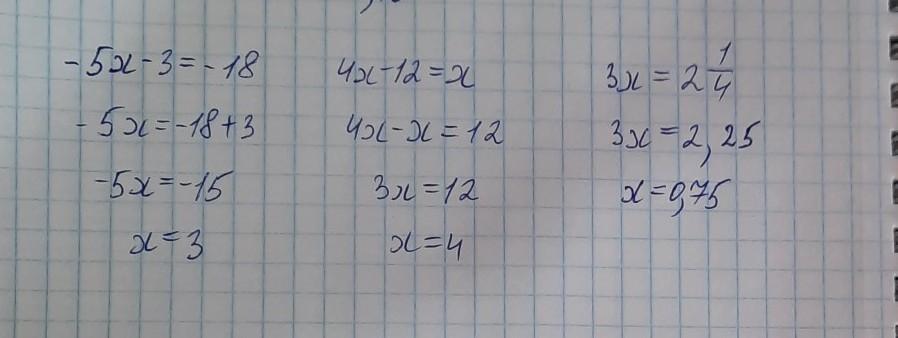 -5x-3=-18
-5x=-18+3
-5x=-15
x=3
4x-12=x
4x-x=12
3x=12
x=4
3x=2 1/4
3x=2,25
x=0,75